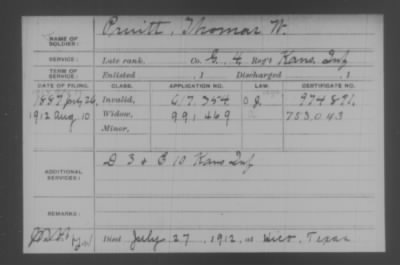 Pruitt, Thomas W.
NAME OF
SOLDIER:
SERVICE: Late rank, Co. G, 4 Reg't Kans. Inf
TERM OF
SERVICE: Enlisted , 1 Discharged , 1
DATE OF FILING. CLASS. APPLICATION NO. LAW. CERTIFICATE NO.
1887 July 26, Invalid, 617.354 974.891.
1912 Aug. 10 Widow, 991.469 753.043
Minor,
ADDITIONAL
SERVICES: D 3 & C 10 Kans Inf
REMARKS:
Died July 27, 1912, at Hico, Texas